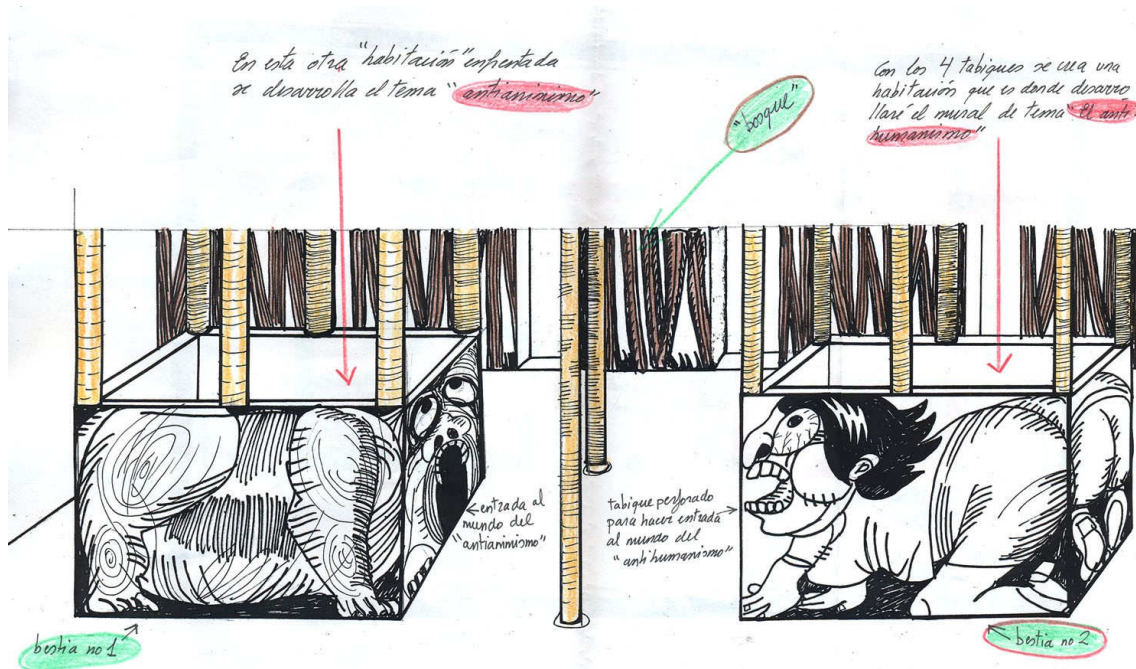 En esta otra "habitación" enfrentada
se desarrolla el tema "antianimismo"
"bosque"
Con los 4 tabiques se crea una
habitación que es donde desarro
llaré el mural de tema "El anti
humanismo"
entrada al
mundo del
"antianimismo"
tabique perforado
para hacer entrada
al mundo del
"antihumanismo"
bestia no 1
bestia no 2